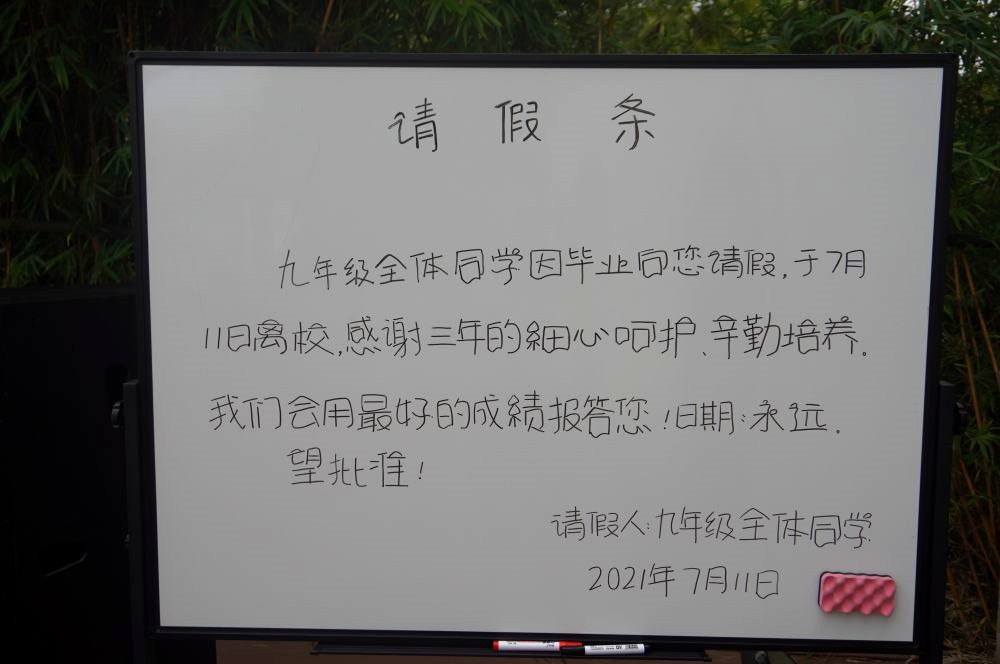 请假条
九年级全体同学因毕业向您请假,于7月
11日离校,感谢三年的細心呵护、辛勤培养.
我们会用最好的成績报答您!日期:永远.
望批准!
请假人:九年级全体同学
2021年7月11日